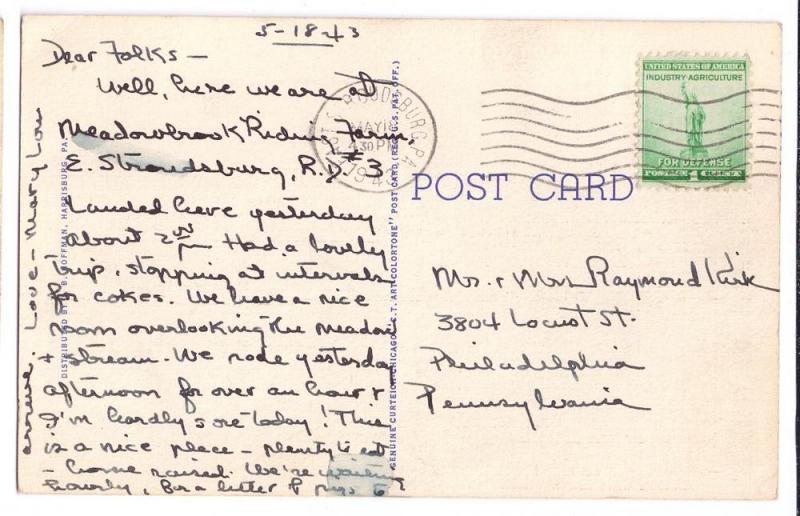 5-18-43
Dear Folks -
Well, here we are at
Meadowbrook Riding Farm,
E. Stroudsburg, R.D. #3
Landed here yesterday
about 2 PM Had a lovely
trip, stopping at intervals
for cokes. We have a nice
room overlooking the meadow
+ stream. We rode yesterday
afternoon for over an hour &
I'm hardly sore today! This
is a nice place - plenty to eat
- home raised. We're waiting
hourly, for a litter of pigs to
arrive. Love - Mary Lou
DISTRIBUTED BY J. B. HOFFMAN, HARRISBURG, PA.
GENUINE CURTEICH-CHICAGO "C. T. ART-COLORTONE" POST CARD (REG. U. S. PAT. OFF.)
E. STROUDSBURG, PA.
MAY 18
430 PM
1943
POST CARD
UNITED STATES OF AMERICA
INDUSTRY AGRICULTURE
FOR DEFENSE
POSTAGE 1 CENT
Mr. & Mrs. Raymond Kirk
3804 Locust St.
Philadelphia
Pennsylvania